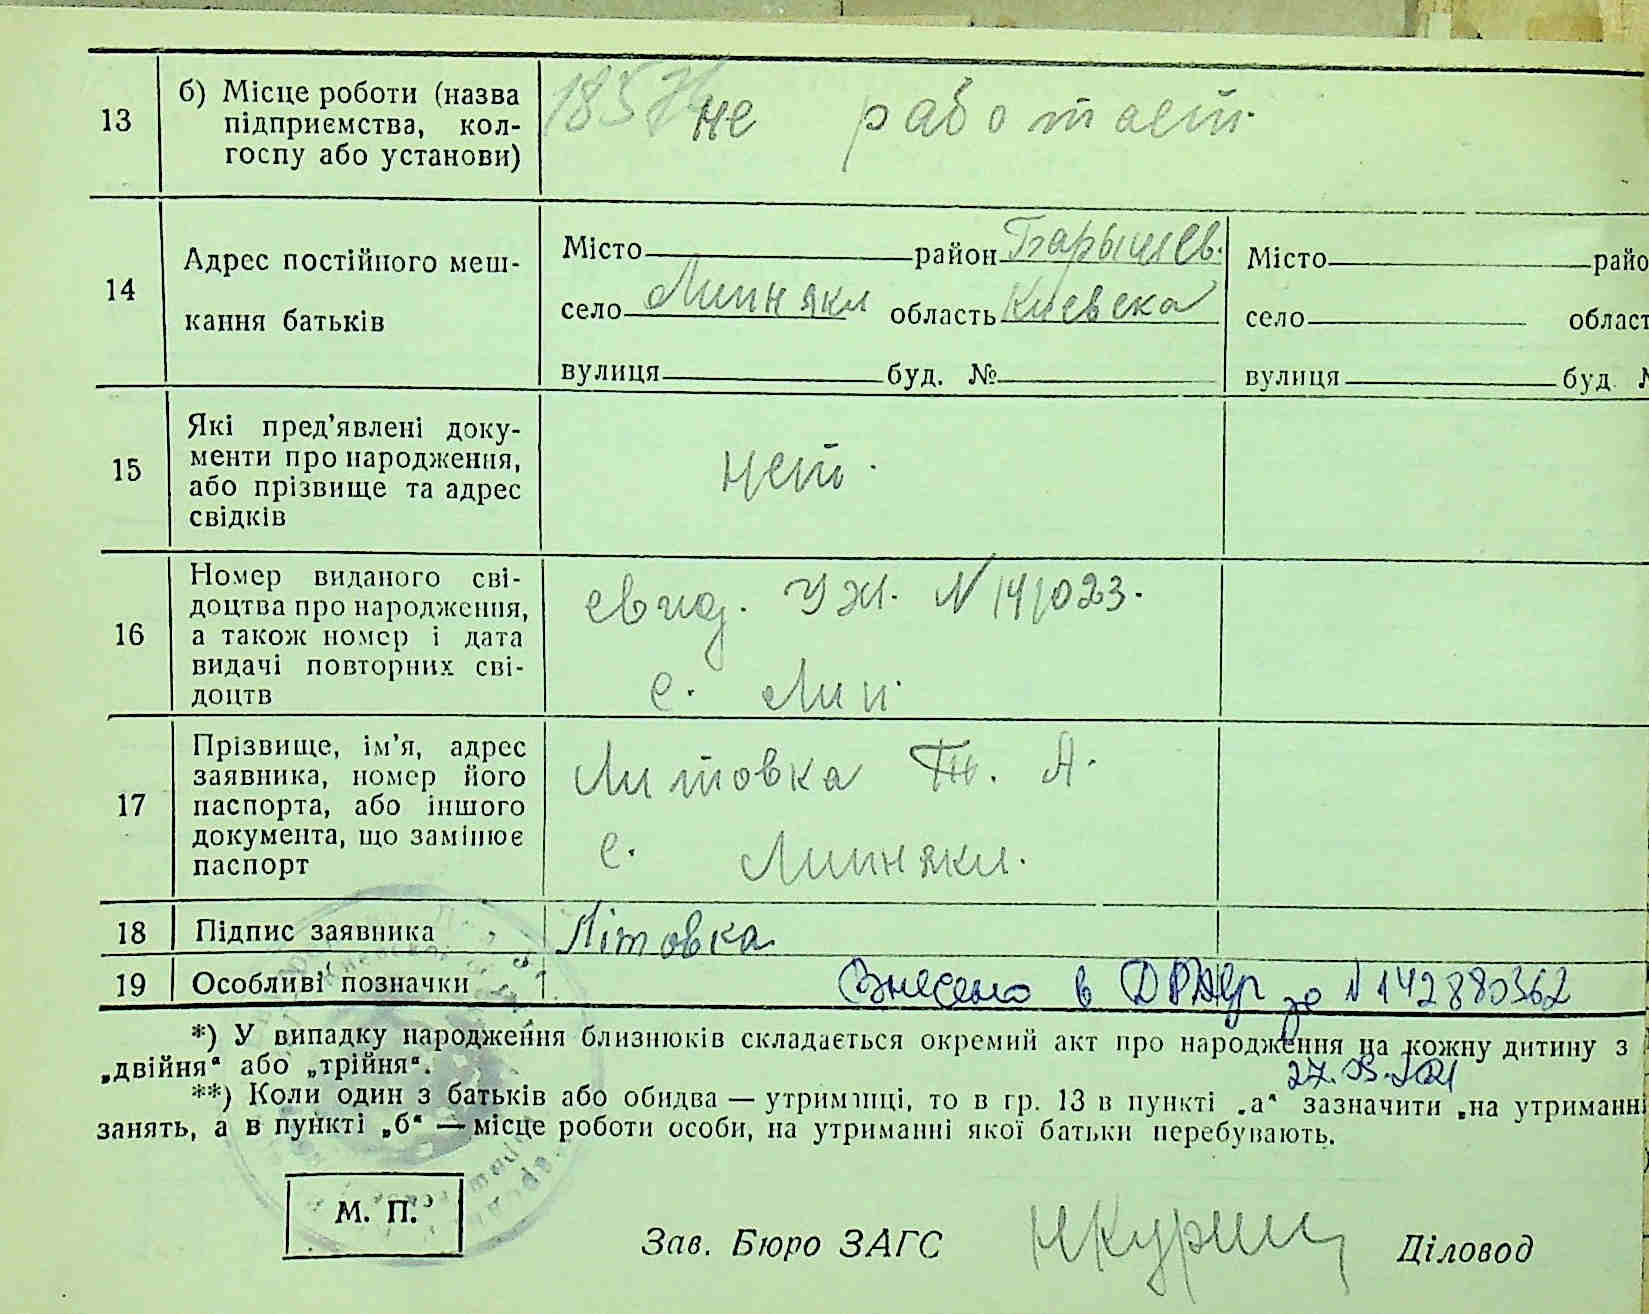 13
б) Місце роботи (назва
підприємства, кол-
госпу або установи)
не работает.
14
Адрес постійного меш-
кання батьків
Місто район Барышев.
село Липняки область Киевска
вулиця буд. №
Місто райо
село област
вулиця буд №
15
Які пред’явлені доку-
менти про народження,
або прізвище та адрес
свідків
нет.
16
Номер виданого сві-
доцтва про народження,
а також номер і дата
видачі повторних сві-
доцтв
свид. УЖ. N 141023.
с. Лип.
17
Прізвище, ім’я, адрес
заявника, номер його
паспорта, або іншого
документа, що замінює
паспорт
Литовка Т. А.
с. Липняки.
18
Підпис заявника
Літовка
19
Особливі позначки
Внесено в ДРАЦС за N 142880362
27.05.2021
*) У випадку народження близнюків складається окремий акт про народження на кожну дитину з
„двійня“ або „трійня“.
**) Коли один з батьків або обидва — утриманці, то в гр. 13 в пункті „а“ зазначити „на утриманні
занять, а в пункті „б“ — місце роботи особи, на утриманні якої батьки перебувають.
М. П.
Зав. Бюро ЗАГС
Діловод